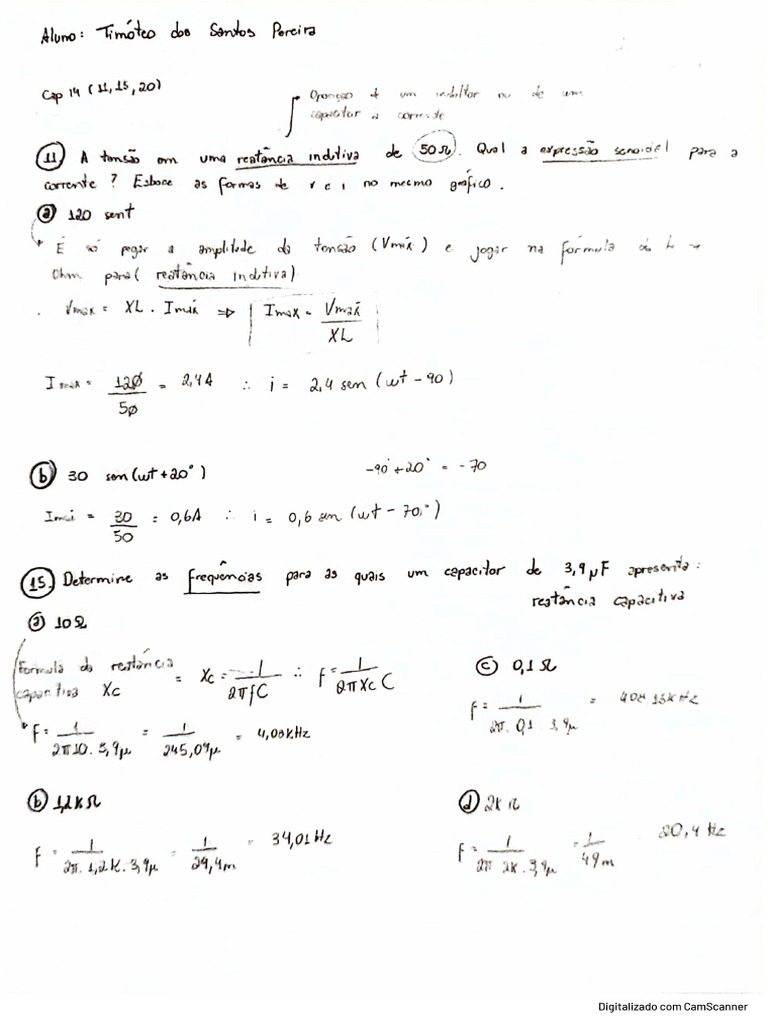 Aluno: Timóteo dos Santos Pereira
Cap 14 (11, 15, 20)
Oposição de um indultor ou de um
capacitor à corrente
11 A tensão em uma reatância indutiva de 50Ω. Qual a expressão senoidal para a
corrente? Esboce as formas de v e i no mesmo gráfico.
a) 120 sent
É só pegar a amplitude da tensão (Vmáx) e jogar na fórmula da
Ohm para (reatância indutiva)
Vmax = XL . Imáx ⇒ Imax = Vmax/XL
Imax = 120/50 = 2,4A ∴ i = 2,4 sen (wt - 90)
b) 30 sen(wt+20°) -90°+20° = -70
Imax = 30/50 = 0,6A ∴ i = 0,6 sen (wt - 70°)
15. Determine as frequências para as quais um capacitor de 3,9μF apresenta:
reatância capacitiva
a) 10Ω
Formula da reatância
capacitiva Xc = Xc = 1/2πfC ∴ f = 1/2πXcC
f = 1/2π10. 3,9μ = 1/245,04μ = 4,08kHz
c) 0,1Ω
f = 1/2π. 0,1 3,9μ = 408.13kHz
b) 1,2kΩ
f = 1/2π. 1,2K. 3,9μ = 1/29,4m = 34,01Hz
d) 2kΩ
f = 1/2π 2K. 3,9μ = 1/49m 20,4 Hz
Digitalizado com CamScanner